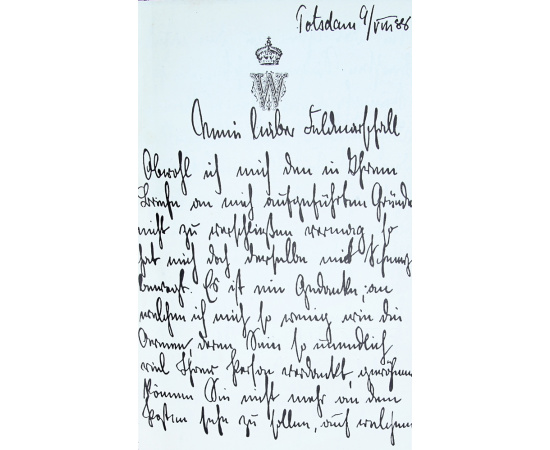 Potsdam 9/VIII 88
W
Mein lieber Feldmarschall
Obwohl ich mich den in Ihrem
Briefe an mich aufgeführten Gründen
nicht zu verschließen vermag, so
hat mich doch derselbe mit Schmerz
bewegt. Es ist ein Gedanke, an
welchen ich mich so wenig wie die
Armee, deren Sein so unendlich
viel Ihrer Person verdankt, gewöhnen
können Sie nicht mehr an dem
Posten sehn zu sollen, auf welchem